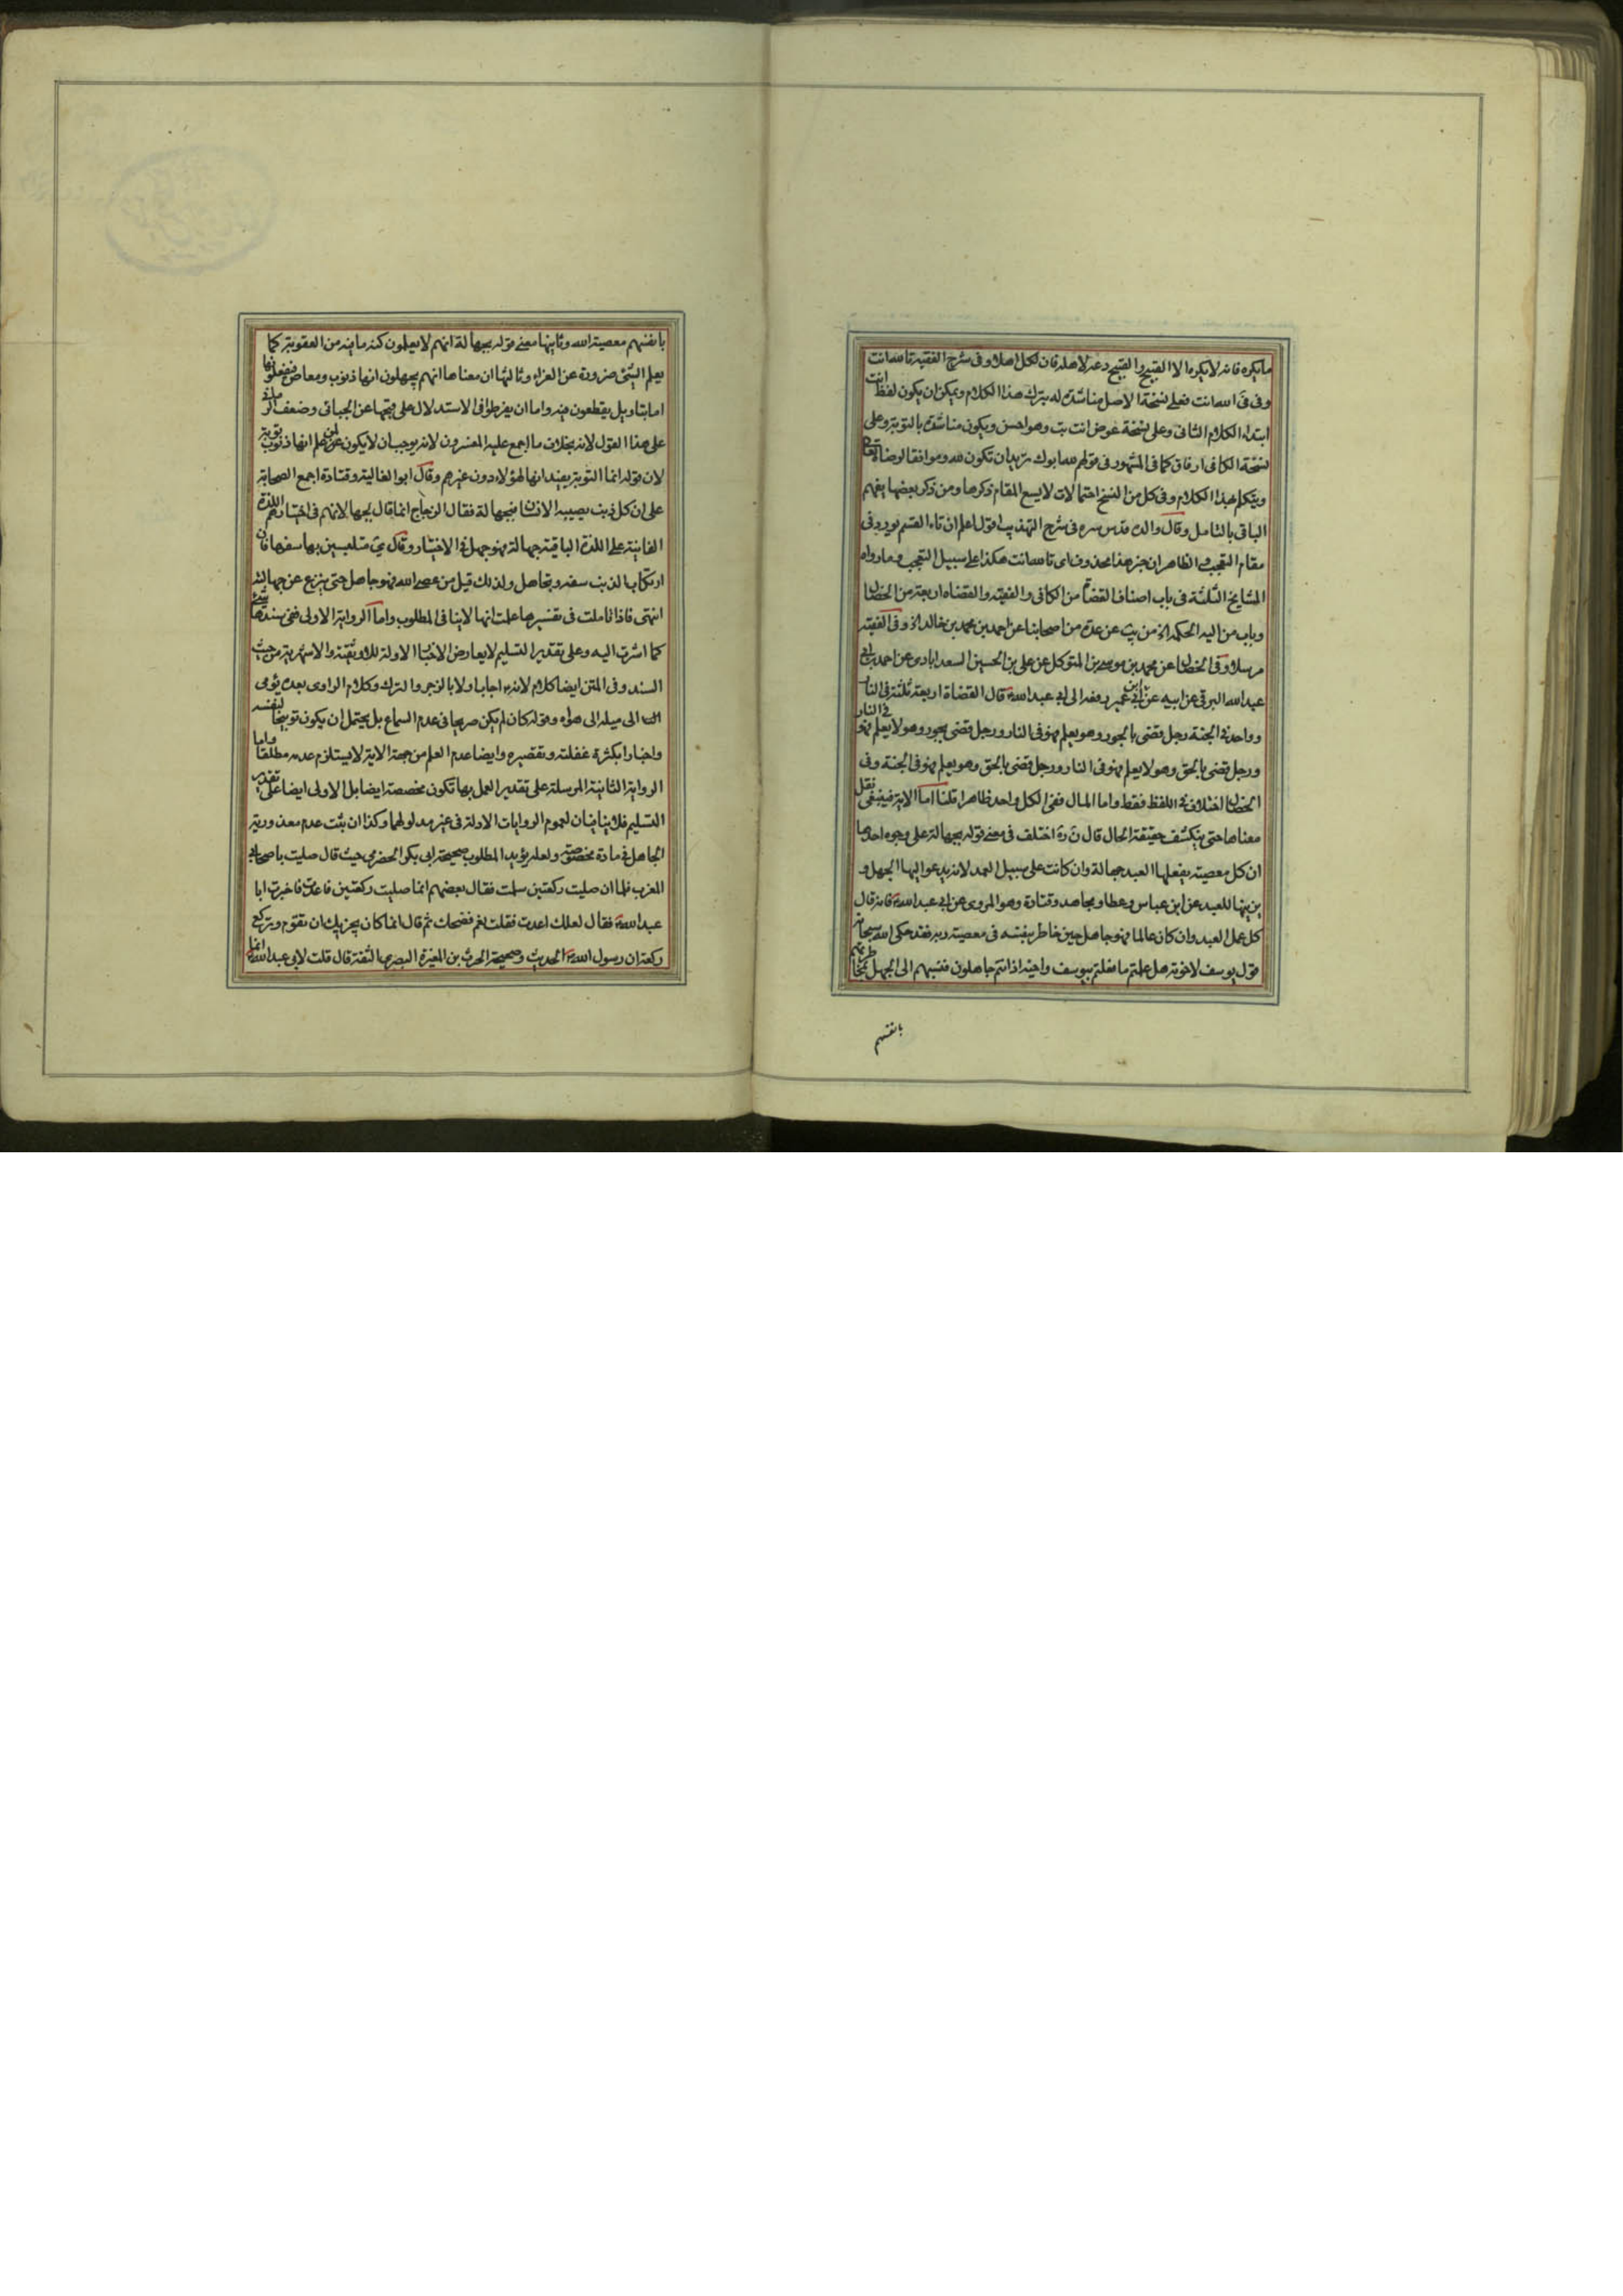 ما يكره فانه لا يكره الا القبيح والقبيح دعه لاهله فان لكل اهلا وفى شرح الفقيه تا لله انت
وفى فى الله انت فعلى نسخة الاصل مناشدة له بترك هذا الكلام ويمكن ان يكون لفظ انت
ابتداء الكلام الثانى وعلى نسخة عوض انت تب وهو احسن ويكون مناشدة بالتوبة وعلى
نسخة الكافى ارفاق كما فى المشهور فى قولهم لله ابوك يريد ان تكون لله وموافقا لرضاه
ويتكلم بهذا الكلام وفى كل من النسخ احتمالات لا يسع المقام ذكرها ومن ذكر بعضها يفهم
الباقى بالتامل وقال والدى قدس سره فى شرح التهذيب اقول اعلم ان تاء القسم يورد فى
مقام التعجب والظاهر ان خبر هذا محذوف اى تا لله انت هكذا على سبيل التعجب وما رواه
المشايخ الثلثة فى باب اصناف القضاة من الكافى والفقيه والقضاة اربعة من الخصال
وباب من اليه الحكم الخ من يب عن عدة من اصحابنا عن احمد بن محمد بن خالد الخ وفى الفقيه
مرسلا وفى الخصال عن محمد بن موسى بن المتوكل عن على بن الحسين السعدابادى عن احمد بن ابى
عبد الله البرقى عن ابيه عن ابن ابى عمير رفعه الى ابى عبد الله قال القضاة اربعة ثلثة فى النار
وواحد فى الجنة رجل قضى بالجور وهو يعلم فهو فى النار ورجل قضى بجور وهو لا يعلم فهو فى النار
ورجل قضى بالحق وهو لا يعلم فهو فى النار ورجل قضى بالحق وهو يعلم فهو فى الجنة وفى
الخصال اختلاف فى اللفظ فقط واما المال ففى الكل واحد ظاهرا قلنا اما الاية فينبغى نقل
معناها حتى ينكشف حقيقة الحال قال اختلف فى معنى قوله بجهالة على وجوه احدها
ان كل معصية يفعلها العبد جهالة وان كانت على سبيل العمد لانه يدعو اليها الجهل و
يزينها للعبد عن ابن عباس وعطا ومجاهد وقتادة وهو المروى عن ابى عبد الله فانه قال
كل عمل العبد وان كان عالما فهو جاهل حين خاطر بنفسه فى معصية ربه فقد حكى الله سبحانه
قول يوسف لاخوته هل علمتم ما فعلتم بيوسف واخيه اذ انتم جاهلون فنسبهم الى الجهل لمخاطرتهم
بانفسهم
بانفسهم معصية الله وثانيها معنى قوله بجهالة انهم لا يعلمون كنه ما فيه من العقوبة كما
يعلم الشئ ضرورة عن الفراء وثالثها ان معناها انهم يجهلون انها ذنوب ومعاص فيفعلونها
اما بتاويل يقطعون فيه واما ان يفرطوا فى الاستدلال على قبحها عن الجبائى وضعف
على هذا القول لانه بخلاف ما اجمع عليه المفسرون لانه يوجب ان لا يكون لمن علم انها ذنوب توبة
لان قوله انما التوبة يفيد انها لهؤلاء دون غيرهم وقال ابو العالية وقتادة اجمع الصحابة
على ان كل ذنب يصيبه الانسان فبجهالة فقال الزجاج انما قال بجهالة لانهم فى اختيارهم اللذة
الفانية على اللذة الباقية جهالة فهو جهل فى الاختيار وقال متلبسين بها سفها فان
ارتكاب الذنب سفه وتجاهل ولذلك قيل من عصى الله فهو جاهل حتى ينزع عن جهالته
انتهى فاذا تاملت فى تفسيرها علمت انها لا ينافى المطلوب واما الرواية الاولى ففى سندها شئ
كما اشرت اليه وعلى تقدير التسليم لا يعارض الاخبار الاولة للاوثقية والاشهرية من حيث
السند وفى المتن ايضا كلام لانه اجاب اولا بالزجر والترك وكلام الراوى بعده يؤمى
الى ميله الى هواه وقوله كان لم يكن صريحا فى عدم السماع بل يحتمل ان يكون توبيخا لنفسه
واخبارا بكثرة غفلته وتقصيره وايضا عدم العلم من جهة الاية لا يستلزم عدمه مطلقا واما
الرواية الثانية المرسلة على تقدير العمل بها تكون مخصصة ايضا بل الاولى ايضا على تقدير
التسليم فلا ينافيان لعموم الروايات الاولة فى غير مدلولهما وكذا ان ثبت عدم معذورية
الجاهل فى مادة مخصوصة ولعله يؤيد المطلوب صحيحة ابى بكر الحضرمى حيث قال صليت باصحابى
المغرب فلما ان صليت ركعتين سلمت فقال بعضهم انما صليت ركعتين فاعدت فاخبرت ابا
عبد الله فقال لعلك اعدت فقلت نعم فضحك ثم قال انما كان يجزيك ان تقوم وتركع
ركعة ان رسول الله الحديث وصحيحة الحرث بن المغيرة البصرى الثقة قال قلت لابى عبد الله انا